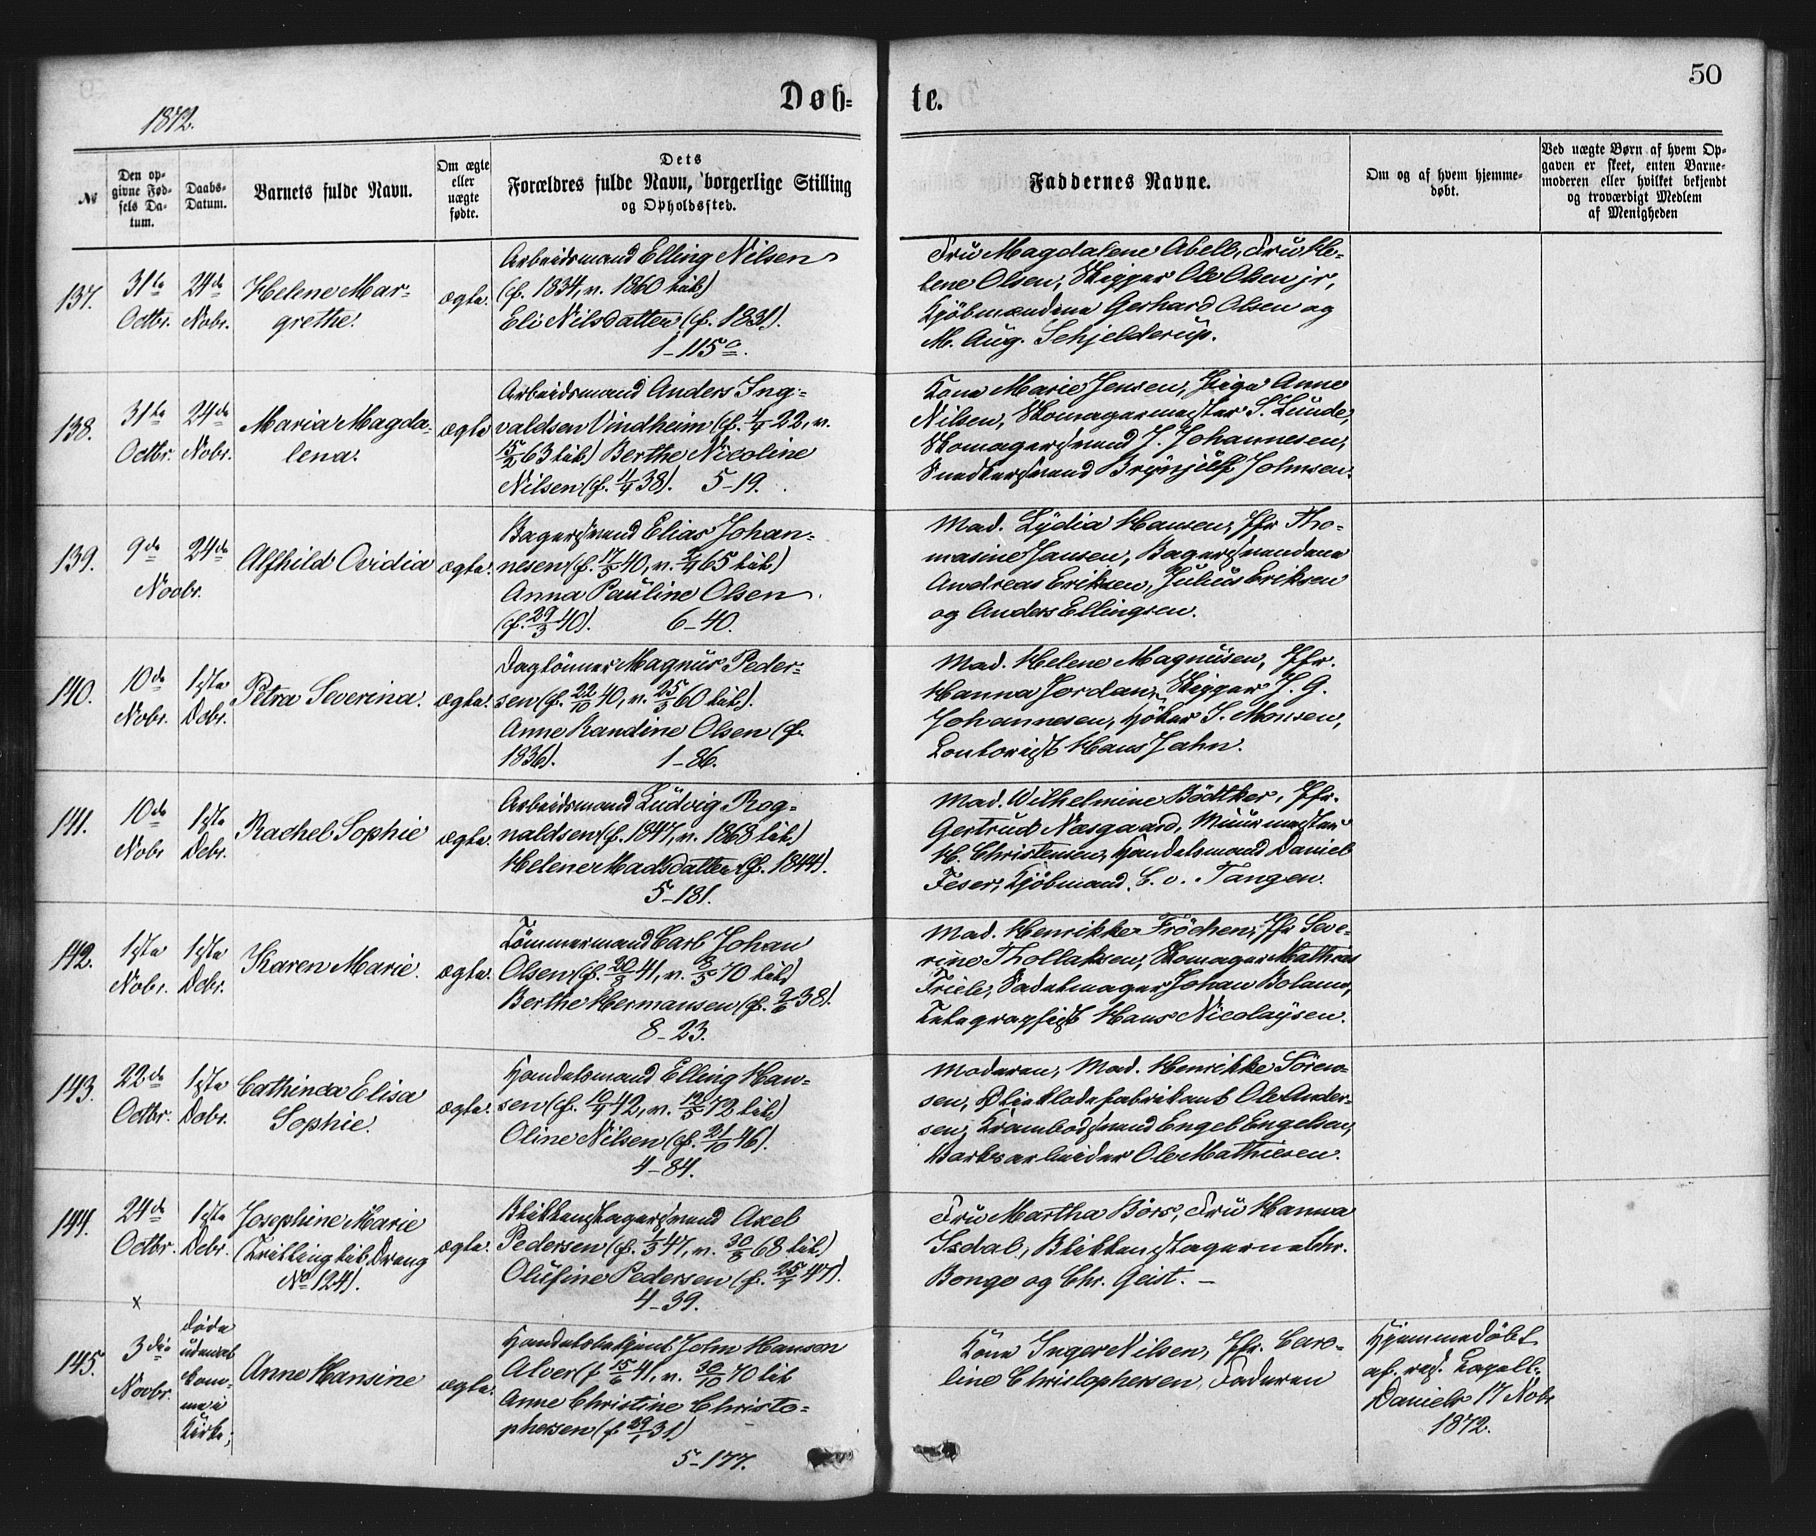 50
Døb-te.
1872.
№
Den opgivne Fødsels Datum.
Daabs-Datum.
Barnets fulde Navn.
Om ægte eller uægte fødte.
Dets Forældres fulde Navn, borgerlige Stilling og Opholdssted.
Faddernes Navne.
Om og af hvem hjemmedøbt.
Ved uægte Børn af hvem Opgaven er skeet, enten Barnemoderen eller hvilket bekjendt og troværdigt Medlem af Menigheden
137.
31te Octbr.
24de Nobr.
Helene Mar-
grethe.
ægte.
Arbeidsmand Elling Nilsen
(f. 1834, v. 1860 til)
Eli Nilsdatter (f. 1831).
1-115a.
Fru Magdalene Abell, Fru He-
lene Olsen, Skipper Ole Olsen jr,
Kjøbmændene Gerhard Olsen og
M. Aug. Schjelderup.
138.
31te Octbr.
24de Nobr.
Maria Magda-
lena.
ægte
Arbeidsmand Anders Ing-
valdsen Vindheim (f. 22, v.
15/2 63 til) Berthe Nicoline
Nilsen (f. 38). 5-19.
Kone Marie Jensen, Pige Anne
Nilsen, Skomagermester S. Lunde,
Skomagersvend J. Johannesen,
Snedkersvend Brynjulf Johnsen.
139.
9de
24de
Novbr.
Alfhild Ovidia
ægte.
Bagersvend Elias Johan-
nesen (f. 17/5 40, v. 65 til)
Anna Pauline Olsen
(f. 29/3 40). 6-40.
Mad. Lydia Hansen, Jfr Tho-
masine Jansen, Bagersvendene
Andreas Eriksen, Julius Eriksen
og Anders Ellingsen.
140.
10de Nobr.
1ste Debr.
Petra Severina.
ægte.
Daglønner Magnus Peder-
sen (f. 22/10 40, v. 25/3 60 til).
Anne Randine Olsen (f.
1836). 1-86.
Mad. Helene Magnusen, Jfr.
Hanna Jordan, Skipper J. G.
Johannesen, Høker J. Monsen,
Contorist Hans Jahn.
141.
10de Nobr
1ste Debr.
Rachel Sophie
ægte.
Arbeidsmand Ludvig Rog-
naldsen (f. 1847, v. 1868 til)
Helene Madsdatter (f. 1844).
5-181.
Mad. Wilhelmine Bødtker, Jfr.
Gertrud Næsgaard, Muurmester
H. Christensen, Handelsmand Daniel
Feser, Kjøbmand Tangen.
142.
1ste Nobr.
1ste Debr.
Karen Marie.
ægte.
Tømmermand Carl Johan
Olsen (f. 41, v. 8/5 70 til)
Berthe Hermansen (f. 38).
8-23.
Mad. Henrikke Frøchen, Jfr Seve-
rine Thollaksen, Skomager Mathias
Friele, Sadelmager Johan Bolann,
Telegraphist Hans Nicolaysen.
143.
22de Octbr.
1ste Debr.
Cathinca Elisa
Sophie.
ægte.
Handelsmand Elling Han-
sen (f. 42, v. 12/5 72 til)
Oline Nilsen (f. 21/10 46).
4-84.
Moderen, Mad. Henrikke Søren-
sen, Ole Ander-
sen, Krambodsvend Engel Engelsen,
Værksarbeider Ole Mathiesen.
144.
24de Octbr.
1ste Debr.
Josephine Marie
(Tvilling til Dreng
No 124).
ægte.
Blikkenslagersvend Axel
Pedersen (f. 1/3 47, v. 30/8 68 til)
Olufine Pedersen (f. 47).
4-39.
Fru Martha Börs, Fru Hanna
Isdal, Blikkenslagerne Chr.
Bonge og Chr. Geist. -
x
145.
3die Novbr.
døde
udenat
kom-
me i
Kirke;
Anne Hansine
ægte.
Handelsbetjent John Hansen
Alver (f 15/6 41, v. 30/10 70 til
Anne Christine Christo-
phersen (f 31)
5-177.
Kone Inger Nilsen, Jfr. Caro-
line Christophersen, Faderen
Hjemmedøbt
af res. Capell:
Daniels 17 Nobr
1872.